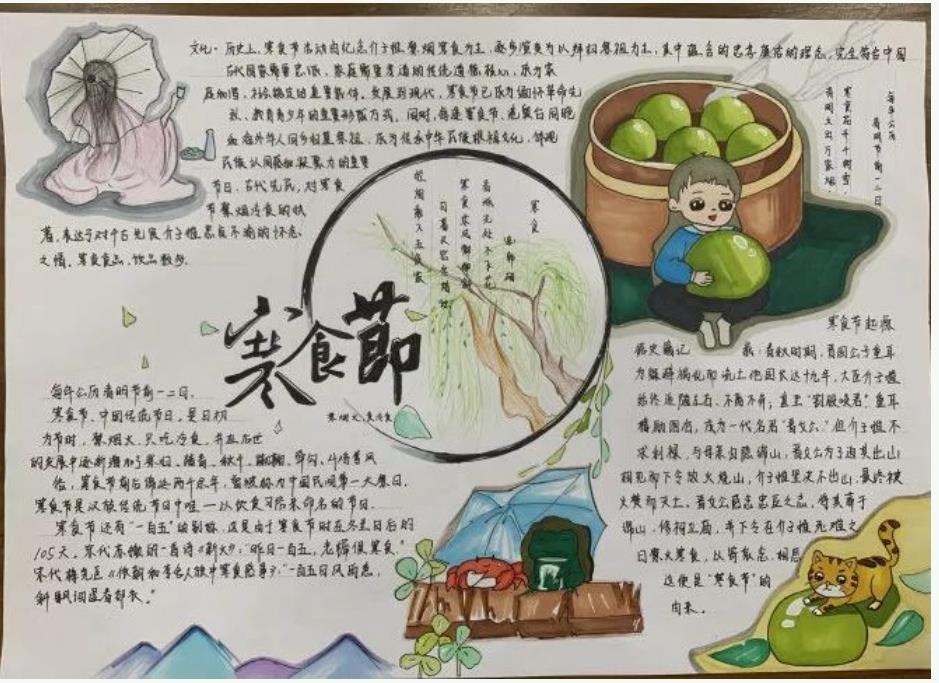 文化·历史上,寒食节活动由纪念介子推禁烟寒食为主,逐步演变为以拜扫祭祖为主,其中蕴含的忠孝廉洁的理念,完全符合中国
古代国家需要忠诚、家庭需要孝道的传统道德核心,成为家
庭和谐、社会稳定的重要载体。发展到现代,寒食节已成为缅怀革命先
烈、教育青少年的重要形式
同时,每逢寒食节,港澳台同胞
和海外华人回乡扫墓祭祖,成为传承中华民族根祖文化,体现
民族认同感和凝聚力的重要
节日,古代先民,对寒食
节禁烟冷食的执
著,表达了对
介子推忠良不渝的怀念
之情。寒食食品、饮品
每年公历
清明节前一二日
寒食花开千树雪,
清明火出万家烟。
寒食
孟云卿
寒食
春城无处不飞花
寒食东风御柳斜
日暮汉宫传蜡烛
轻烟散入五侯家
寒食節
禁烟火,食冷食
每年公历清明节前一二日。
寒食节,中国传统节日,是日初
为节时,禁烟火,只吃冷食,并在后世
的发展中逐渐增加了祭扫、踏青、秋千、蹴鞠、牵勾、斗鸡等风
俗,寒食节前后绵延两千余年,曾被称为中国民间第一大祭日。
寒食节是汉族传统节日中唯一以饮食习俗来命名的节日。
寒食节还有“一百五”的别称,这是由于寒食节时在冬至日后的
105天。宋代苏辙的一首诗《新火》:“昨日一百五,老稚俱寒食。”
宋代梅尧臣《依韵和李舍人旅中寒食感事》:“一百五日风雨急,
斜飘细湿春郊衣。”
寒食节起源
据史籍记
载:春秋时期,晋国公子重耳
为躲避祸乱而流亡他国长达十九年,大臣介子推
始终追随左右、不离不弃;甚至“割股啖君”。重耳
励图治,成为一代名君“晋文公。”但介子推不
求利禄,与母亲归隐绵山,晋文公为了迫其出山
相见而下令放火烧山,介子推坚决不出山,最终被
火焚而死。晋文公感念忠臣之志,将其葬于
绵山,修祠立庙,并下令在介子推死难之
日禁火寒食,以寄哀思,
这便是“寒食节”的
由来。